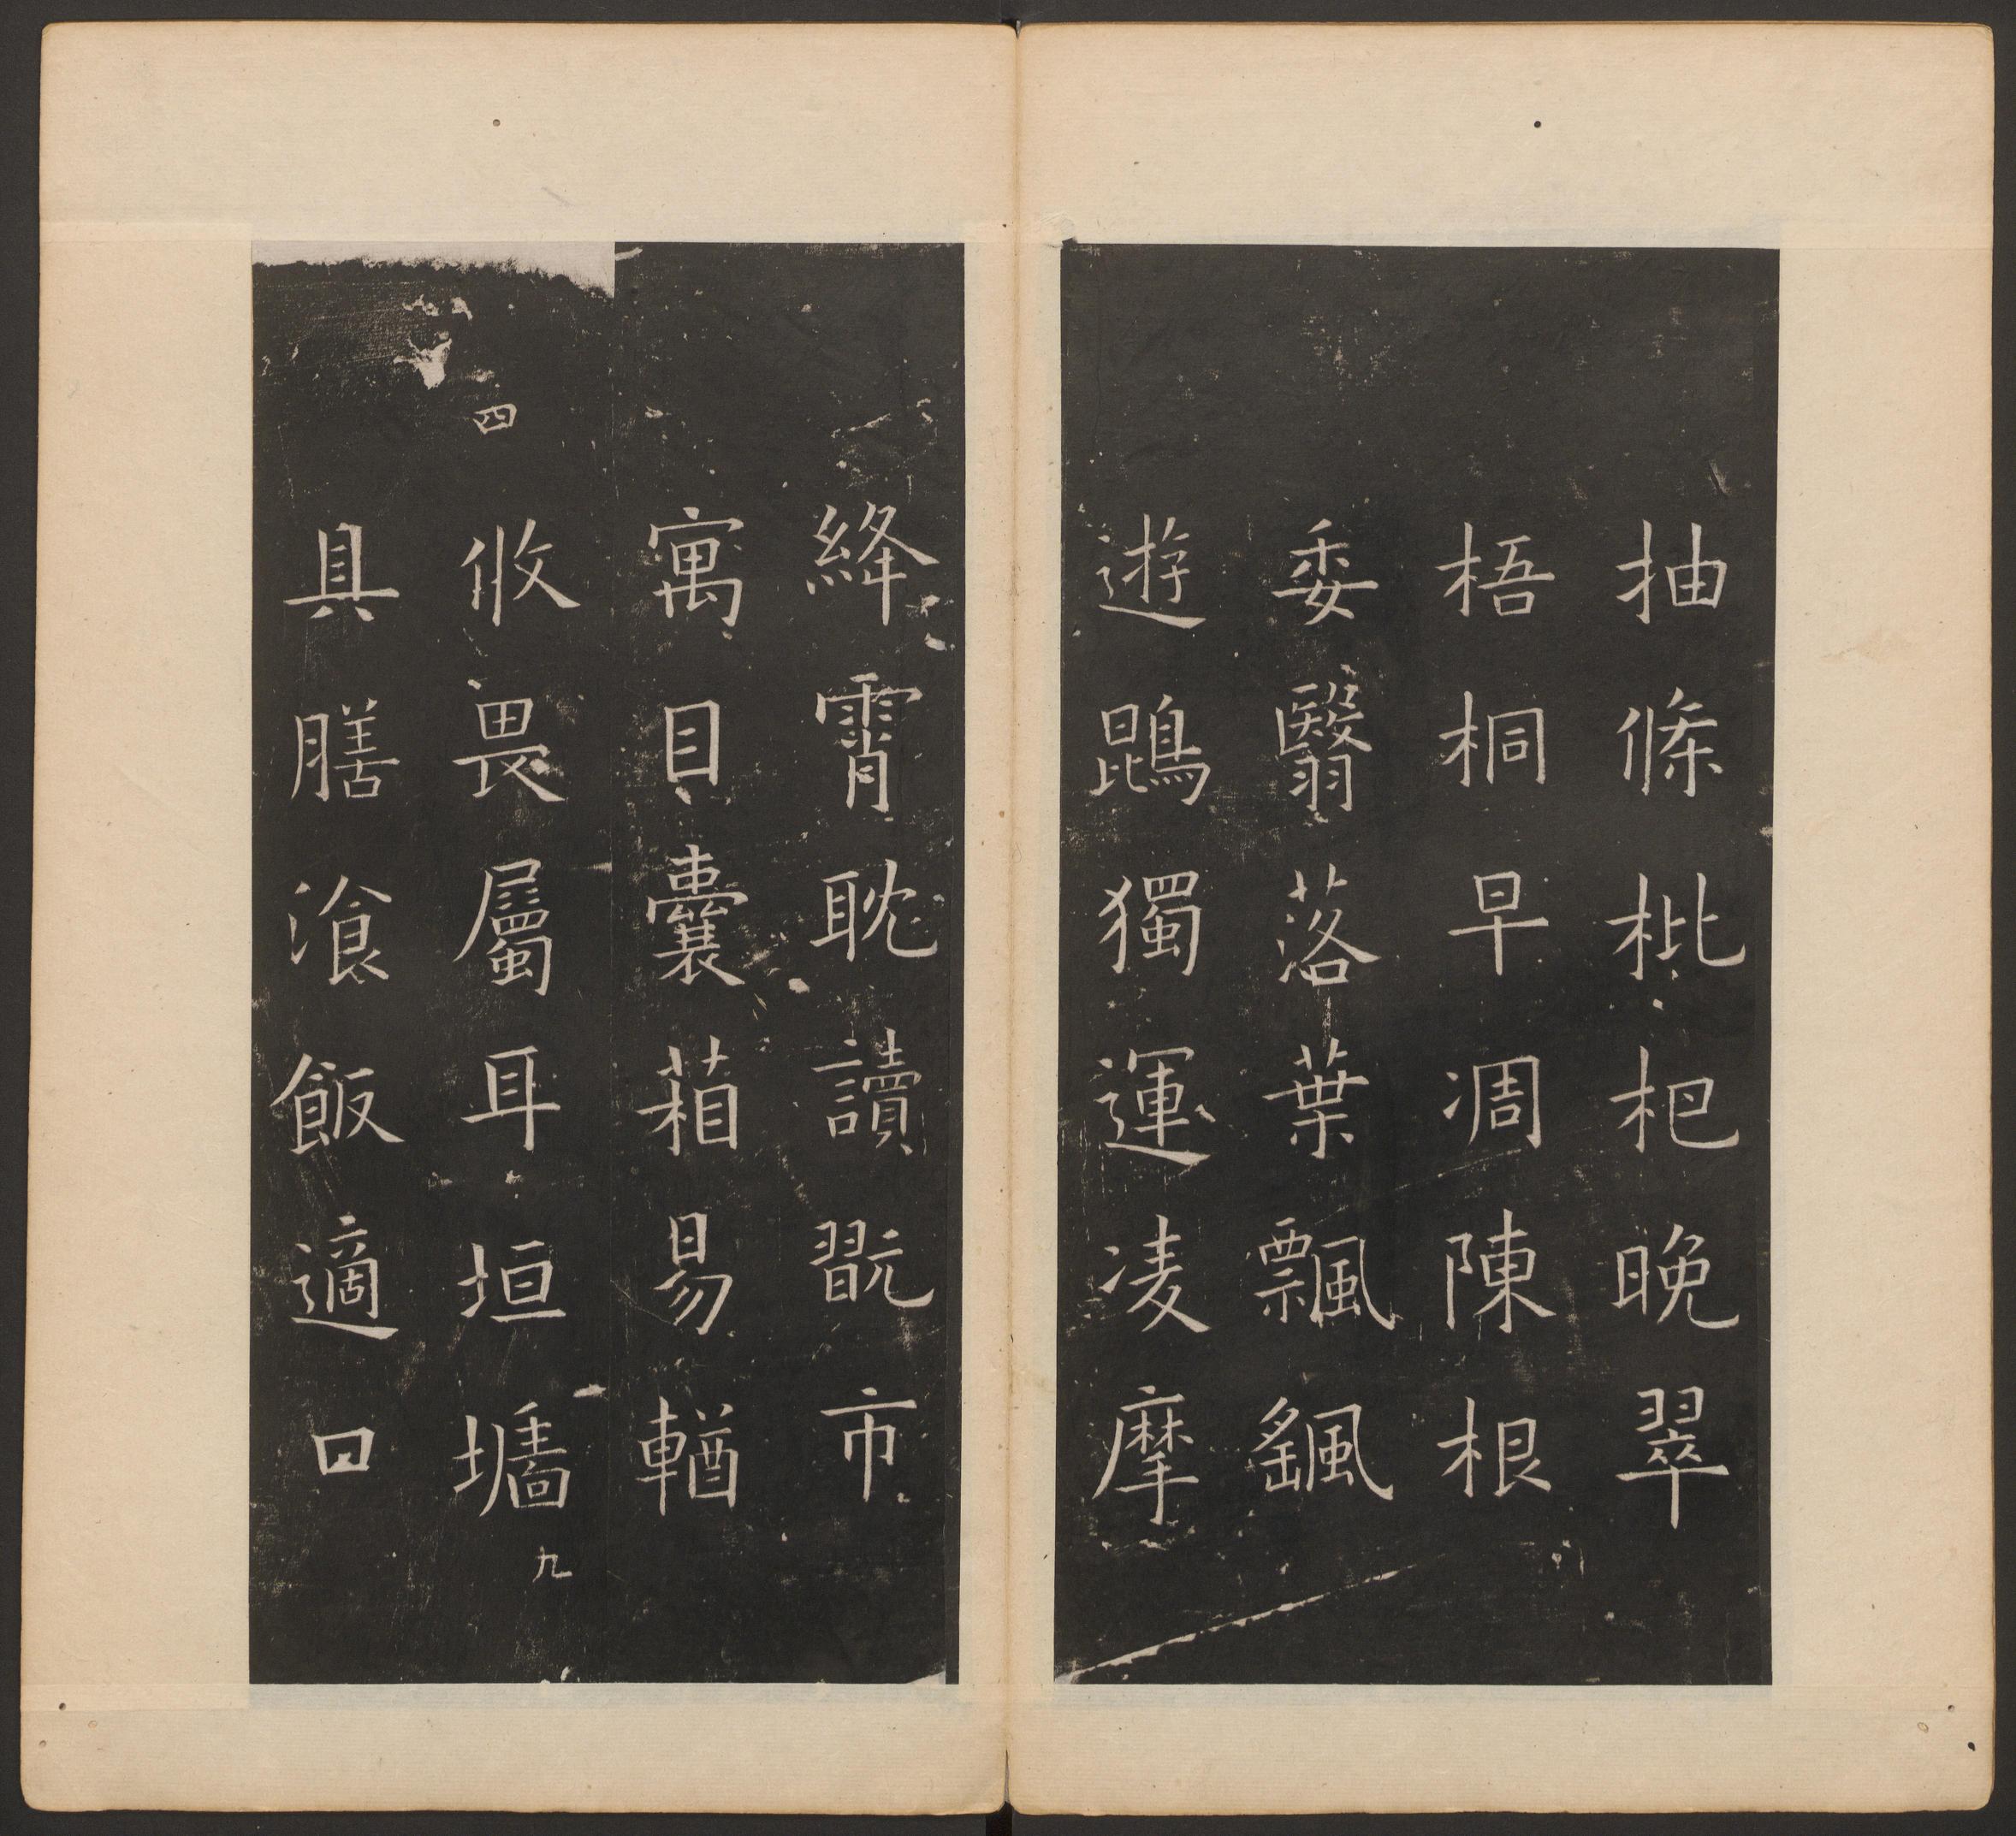 抽條枇杷晚翠
梧桐早凋陳根
委翳落葉飄颻
遊鵾獨運凌摩
絳霄耽讀翫市
寓目囊葙易輶
四
攸畏屬耳垣墻
九
具膳飡飯適口